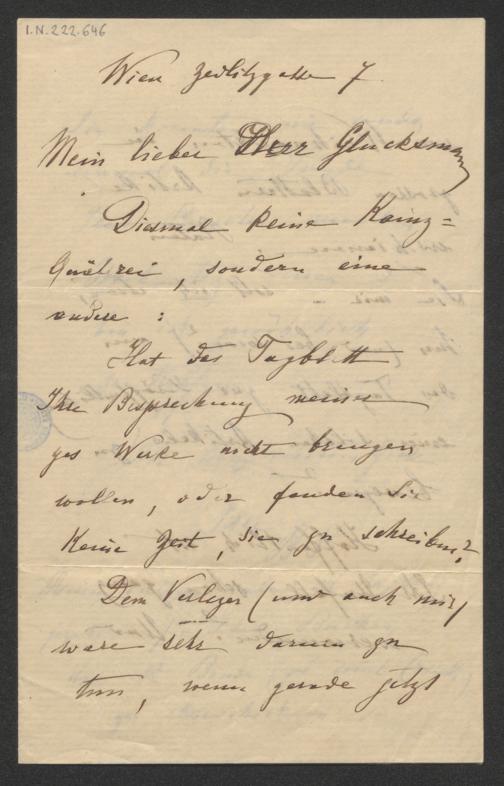 I.N. 222.646
Wien Zedlitzgasse 7
Mein lieber Herr Glucksmann
Diesmal keine Kainz=
Quälerei, sondern eine
andere:
Hat das Tagblatt
Ihre Besprechung meiner
ges Werke nicht bringen
wollen, oder fanden Sie
keine Zeit, sie zu schreiben?
Dem Verleger (und auch mir)
wäre sehr darum zu
tun, wenn gerade jetzt